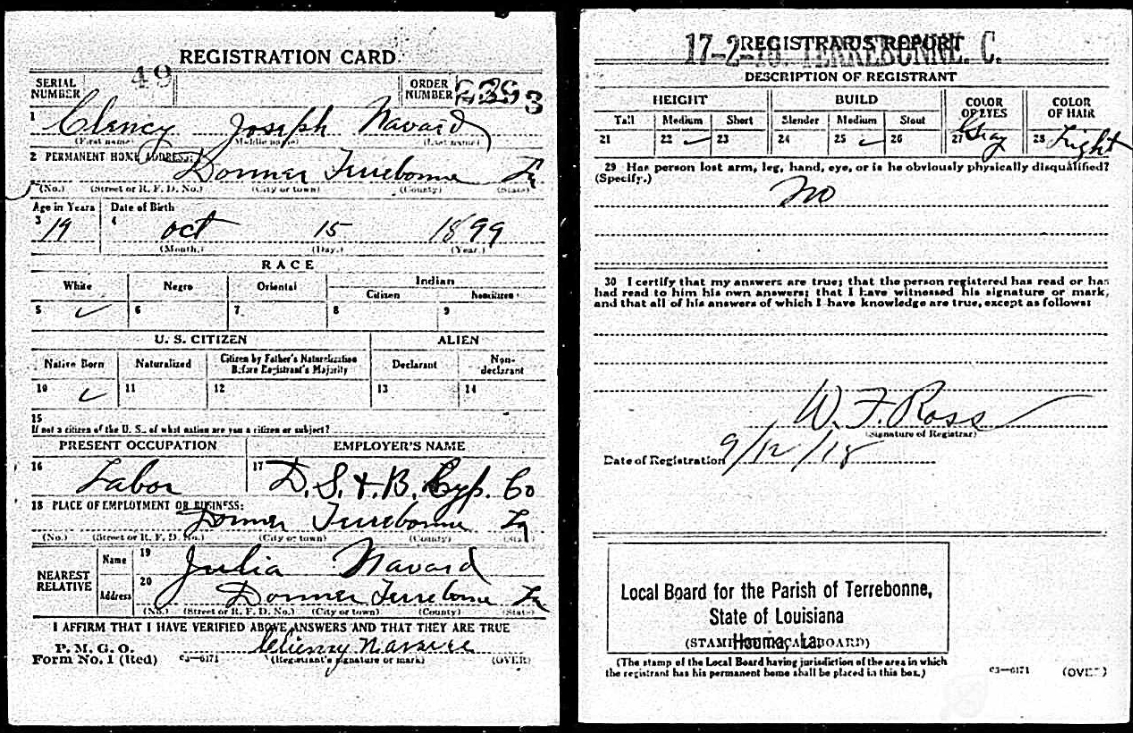 REGISTRATION CARD
SERIAL NUMBER 49 ORDER NUMBER
1 Clency Joseph Navard
(First name) (Middle name) (Last name)
2 PERMANENT HOME ADDRESS:
Donner Terrebonne La
(No.) (Street or R. F. D. No.) (City or town) (County) (State)
Age in Years Date of Birth
3 19 4 Oct 15 1899
(Month.) (Day.) (Year.)
RACE
White Negro Oriental Indian
Citizen
5 ✓ 6 7 8 9
U. S. CITIZEN ALIEN
Native Born Naturalized Citizen by Father's Naturalization Before Registrant's Majority Declarant Non-declarant
10 ✓ 11 12 13 14
15
If not a citizen of the U. S., of what nation are you a citizen or subject?
PRESENT OCCUPATION EMPLOYER'S NAME
16 Labor 17 D. S. & B. Cyp. Co
18 PLACE OF EMPLOYMENT OR BUSINESS:
Donner Terrebonne La
(No.) (Street or R. F. D. No.) (City or town) (County) (State)
NEAREST RELATIVE
Name 19 Julia Navard
Address 20 Donner Terrebonne La
(No.) (Street or R. F. D. No.) (City or town) (County) (State)
I AFFIRM THAT I HAVE VERIFIED ABOVE ANSWERS AND THAT THEY ARE TRUE
P. M. G. O.
Form No. 1 (Red) c3—6171 (Registrant's signature or mark) (OVER)
REGISTRAR'S REPORT
17-2- TERREBONNE. C.
DESCRIPTION OF REGISTRANT
HEIGHT BUILD COLOR OF EYES COLOR OF HAIR
Tall Medium Short Slender Medium Stout
21 22 ✓ 23 24 25 ✓ 26 27 Gray 28 Light
29 Has person lost arm, leg, hand, eye, or is he obviously physically disqualified?
(Specify.) No
30 I certify that my answers are true; that the person registered has read or has
had read to him his own answers; that I have witnessed his signature or mark,
and that all of his answers of which I have knowledge are true, except as follows:
W. F. Ross
(Signature of Registrar)
Date of Registration 9/12/18
Local Board for the Parish of Terrebonne,
State of Louisiana
Houma, La.
(STAMP OF LOCAL BOARD)
(The stamp of the Local Board having jurisdiction of the area in which
the registrant has his permanent home shall be placed in this box.)
c3—6171 (OVER)